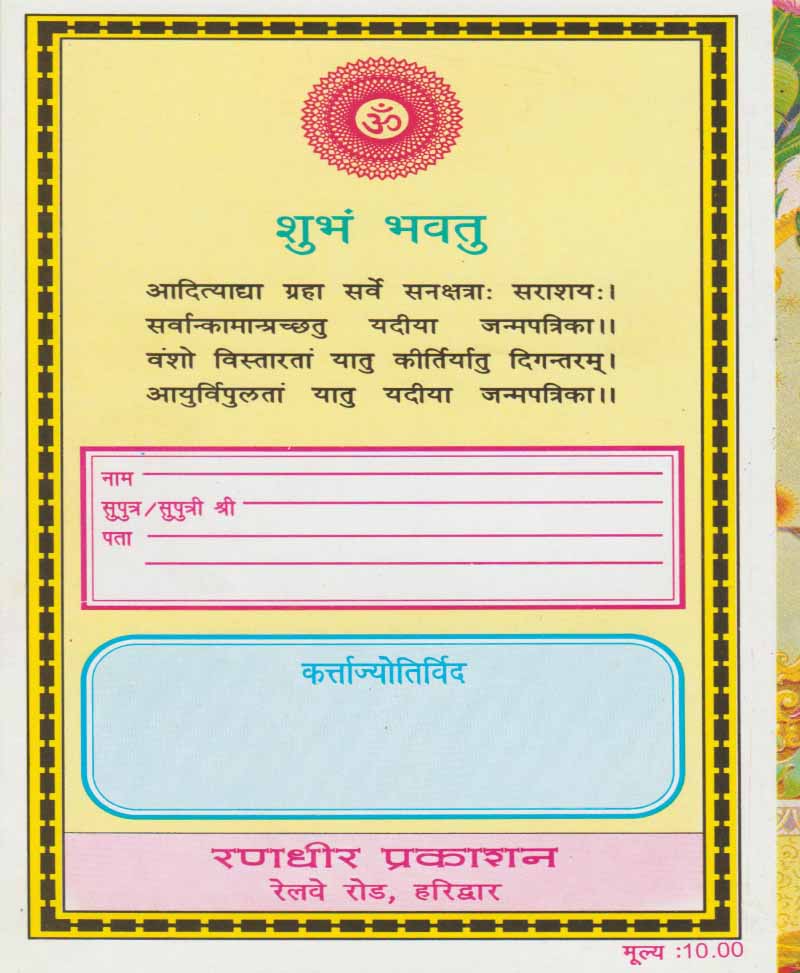 ॐ
शुभं भवतु
आदित्याद्या ग्रहा सर्वे सनक्षत्राः सराशयः।
सर्वान्कामान्प्रच्छतु यदीया जन्मपत्रिका।।
वंशो विस्तारतां यातु कीर्तिर्यातु दिगन्तरम्।
आयुर्विपुलतां यातु यदीया जन्मपत्रिका।।
नाम
सुपुत्र/सुपुत्री श्री
पता
कर्त्ताज्योतिर्विद
रणधीर प्रकाशन
रेलवे रोड, हरिद्वार
मूल्य :10.00